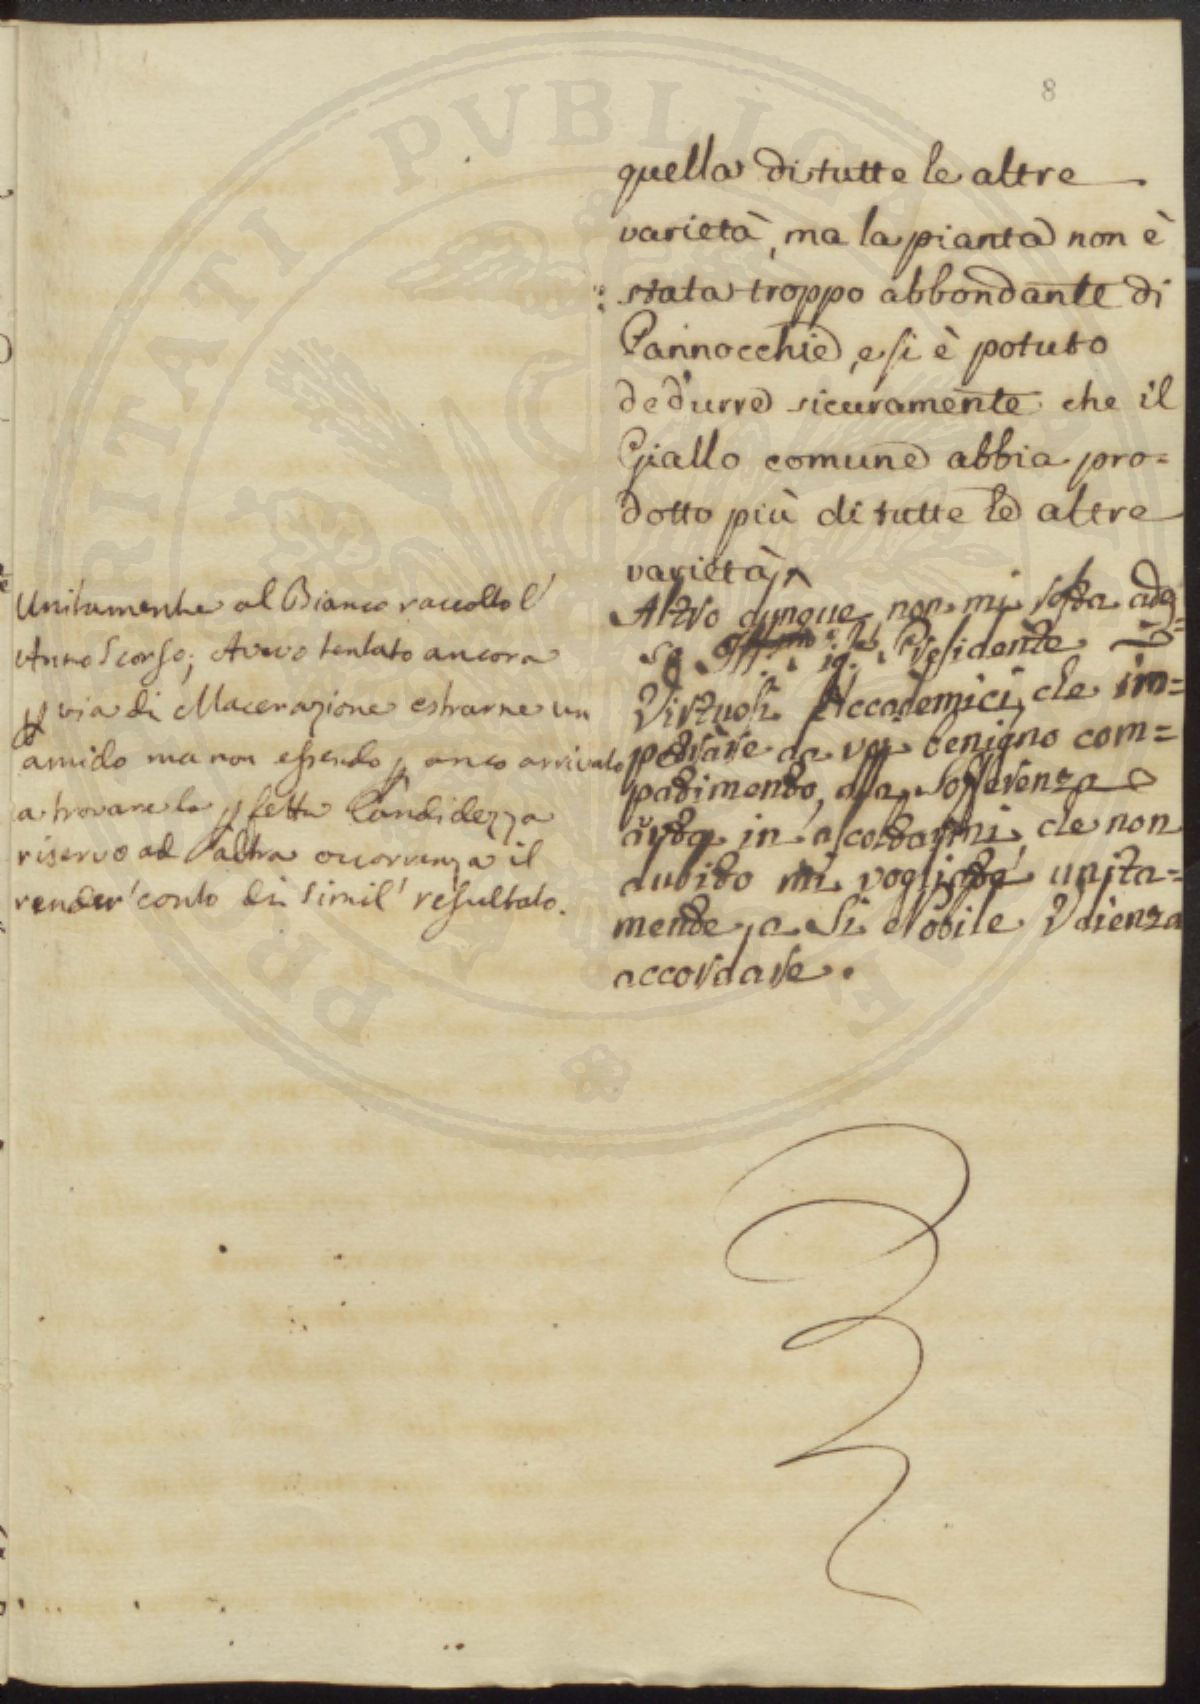 8
quella di tutte le altre
varietà, ma la pianta non è
stata troppo abbondante di
Pannocchie, e si è potuto
dedurre sicuramente che il
Giallo comune abbia pro=
dotto più di tutte le altre
varietà
Altro dunque non mi resta ades=
so Presidente
Virtuosi Accademici, che im=
petrare da voi benigno com=
patimento, alla sofferenza
avuta in ascoltarmi, che non
dubito mi vogliate unita=
mente, a Si Nobile Udienza
accordare.
Unitamente al Bianco raccolto l'
Anno Scorso; Avevo tentato ancora
p via di Macerazione estrarne un
amido ma non essendo p anco arrivato
a trovare la pfetta Candidezza
riservo ad altra occorrenza il
render conto di simil' resultato.
PRITATI PVBLICAE